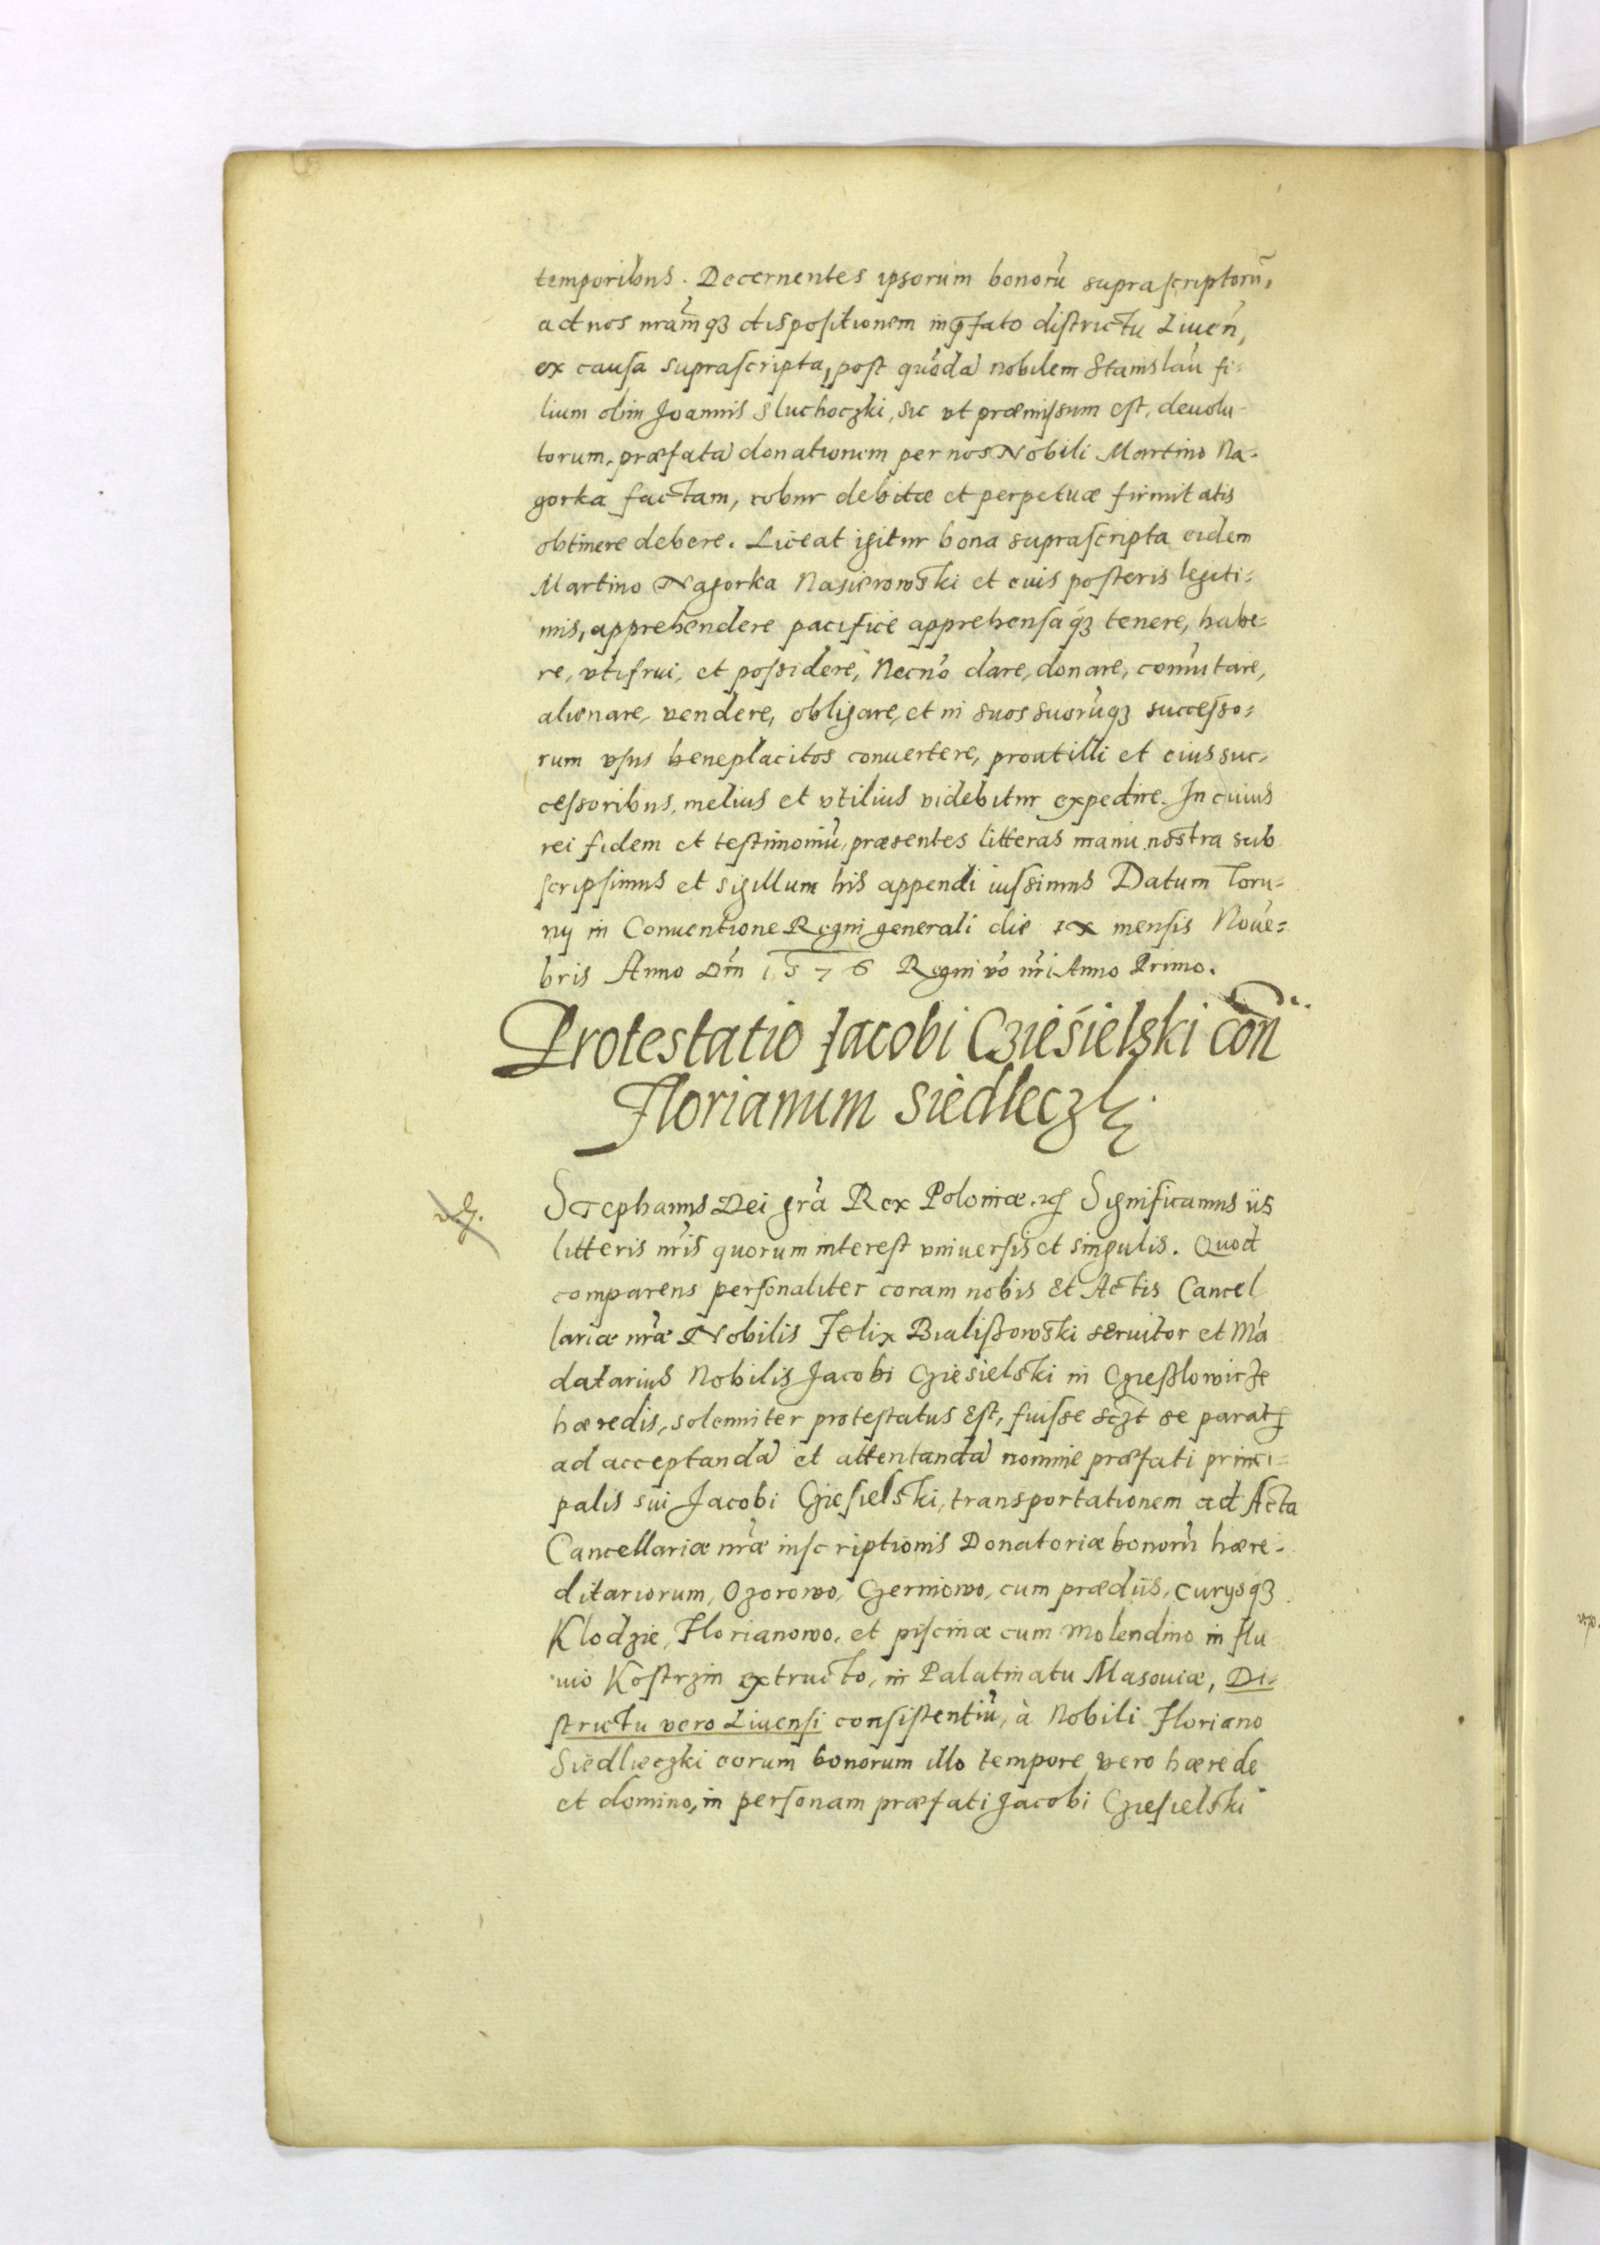 temporibus. Decernentes ipsorum bonorũ suprascriptorũ,
ad nos nrãmq3 dispositionem in p̄fato districtu Liueñ,
ex causa suprascripta, post quõdã nobilem Stanislaũ fi-
lium olim Joannis Sluchoczki, sic vt præmissum est, deuolu-
torum, præfatã donationem per nos Nobili Martino Na-
gorka factam, robur debitæ et perpetuæ firmitatis
obtinere debere. Liceat igitur bona suprascripta eidem
Martino Nagorka Nasierowski et eius posteris legiti-
mis, apprehendere pacifice apprehensaq3 tenere, habe-
re, vtifrui, et possidere, Necnõ dare, donare, comũtare,
alienare, vendere, obligare, et in suos suorũq3 successo-
rum vsus beneplacitos conuertere, prout illi et eius suc-
cessoribus, melius et vtilius videbitur expedire. In cuius
rei fidem et testimoniũ, præsentes litteras manu nostra sub
scripsimus et sigillum his appendi iussimus Datum Toru-
nij in Conuentione Regni generali die ix mensis Noue-
bris Anno Dñi 1576 Regni vo nri Anno Primo.
Protestatio Jacobi Cziesielski con
Florianum Siedleczki.
Stephanus Dei grã Rex Poloniæ. Significamus iis
litteris nris quorum interest vniuersis et singulis. Quod
comparens personaliter coram nobis Et Actis Cancel
lariæ nræ Nobilis Felix Bialiszowski seruitor et Mã
datarius Nobilis Jacobi Cziesielski in Czieszlowicze
hæredis, solenniter protestatus Est, fuisse sczt se parat
ad acceptandã et attentandã nomine præfati princi-
palis sui Jacobi Cziesielski, transportationem ad Acta
Cancellariæ nræ inscriptionis Donatoriæ bonorũ hære-
ditariorum, Ozorowo, Czerniowo, cum prædiis, curijsq3
Klodzie, Florianowo, et piscinæ cum molendino in flu
uio Kostrzin extructo, in Palatinatu Masouiæ, Di-
strictu vero Liuensi consistentiũ, à Nobili Floriano
Siedlieczki eorum bonorum illo tempore vero hærede
et domino, in personam præfati Jacobi Cziesielski